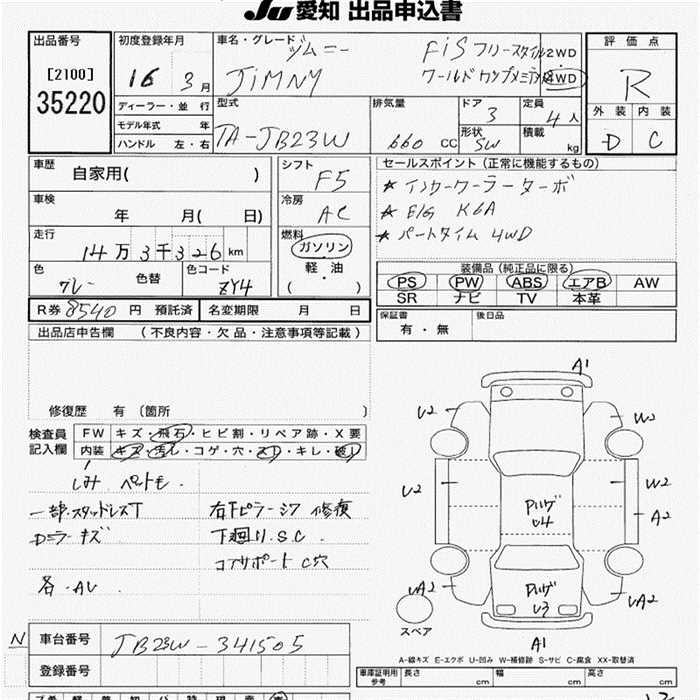 JU 愛知 出品申込書
出品番号 初度登録年月 車名・グレード ジムニー FiS フリースタイル 2WD 評価点
[2100] 16 3月 JiMNY ワールドカップ 4WD R
35220
ディーラー・並行 型式 排気量 ドア 定員 外装 内装
モデル年式 年 TA-JB23W 660 CC 3 4人 D C
ハンドル 左・右 形状 SW 積載 kg
車歴 シフト セールスポイント (正常に機能するもの)
自家用( ) F5 ★ インタークーラーターボ
車検 冷房 ★ E/G K6A
年 月( 日) AC ★ パートタイム 4WD
走行 燃料
14万3千326km ガソリン 装備品 (純正品に限る)
色 グレー 色替 色コード ZY4 軽・油 PS PW ABS エアB AW
( ・ ) SR ナビ TV 本革
R券 8540 円 預託済 名変期限 月 日 保証書 有・無 後日品
出品店申告欄 (不良内容・欠品・注意事項等記載)
修復歴 有 〔箇所 〕
検査員 FW キズ・飛石・ヒビ割・リペア跡・X要
記入欄 内装 キズ・汚レ・コゲ・穴・スレ・キレ・破レ
しみ ペットモ.
一部スタッドレスT 右下ピラーシワ 修復
Dミラーキズ 下廻り.S.C.
コアサポート C穴
各.AU.
A1
U2 W2
U2 W2
Pルーゲ U4 A2
UA2 Pルーゲ U3 UA2
スペア A1
A-線キズ E-エクボ U-凹み W-補修跡 S-サビ C-腐食 XX-取替済
N 車台番号 JB23W-341505
登録番号 車庫証明用参考 長さ cm 幅 cm 高さ cm